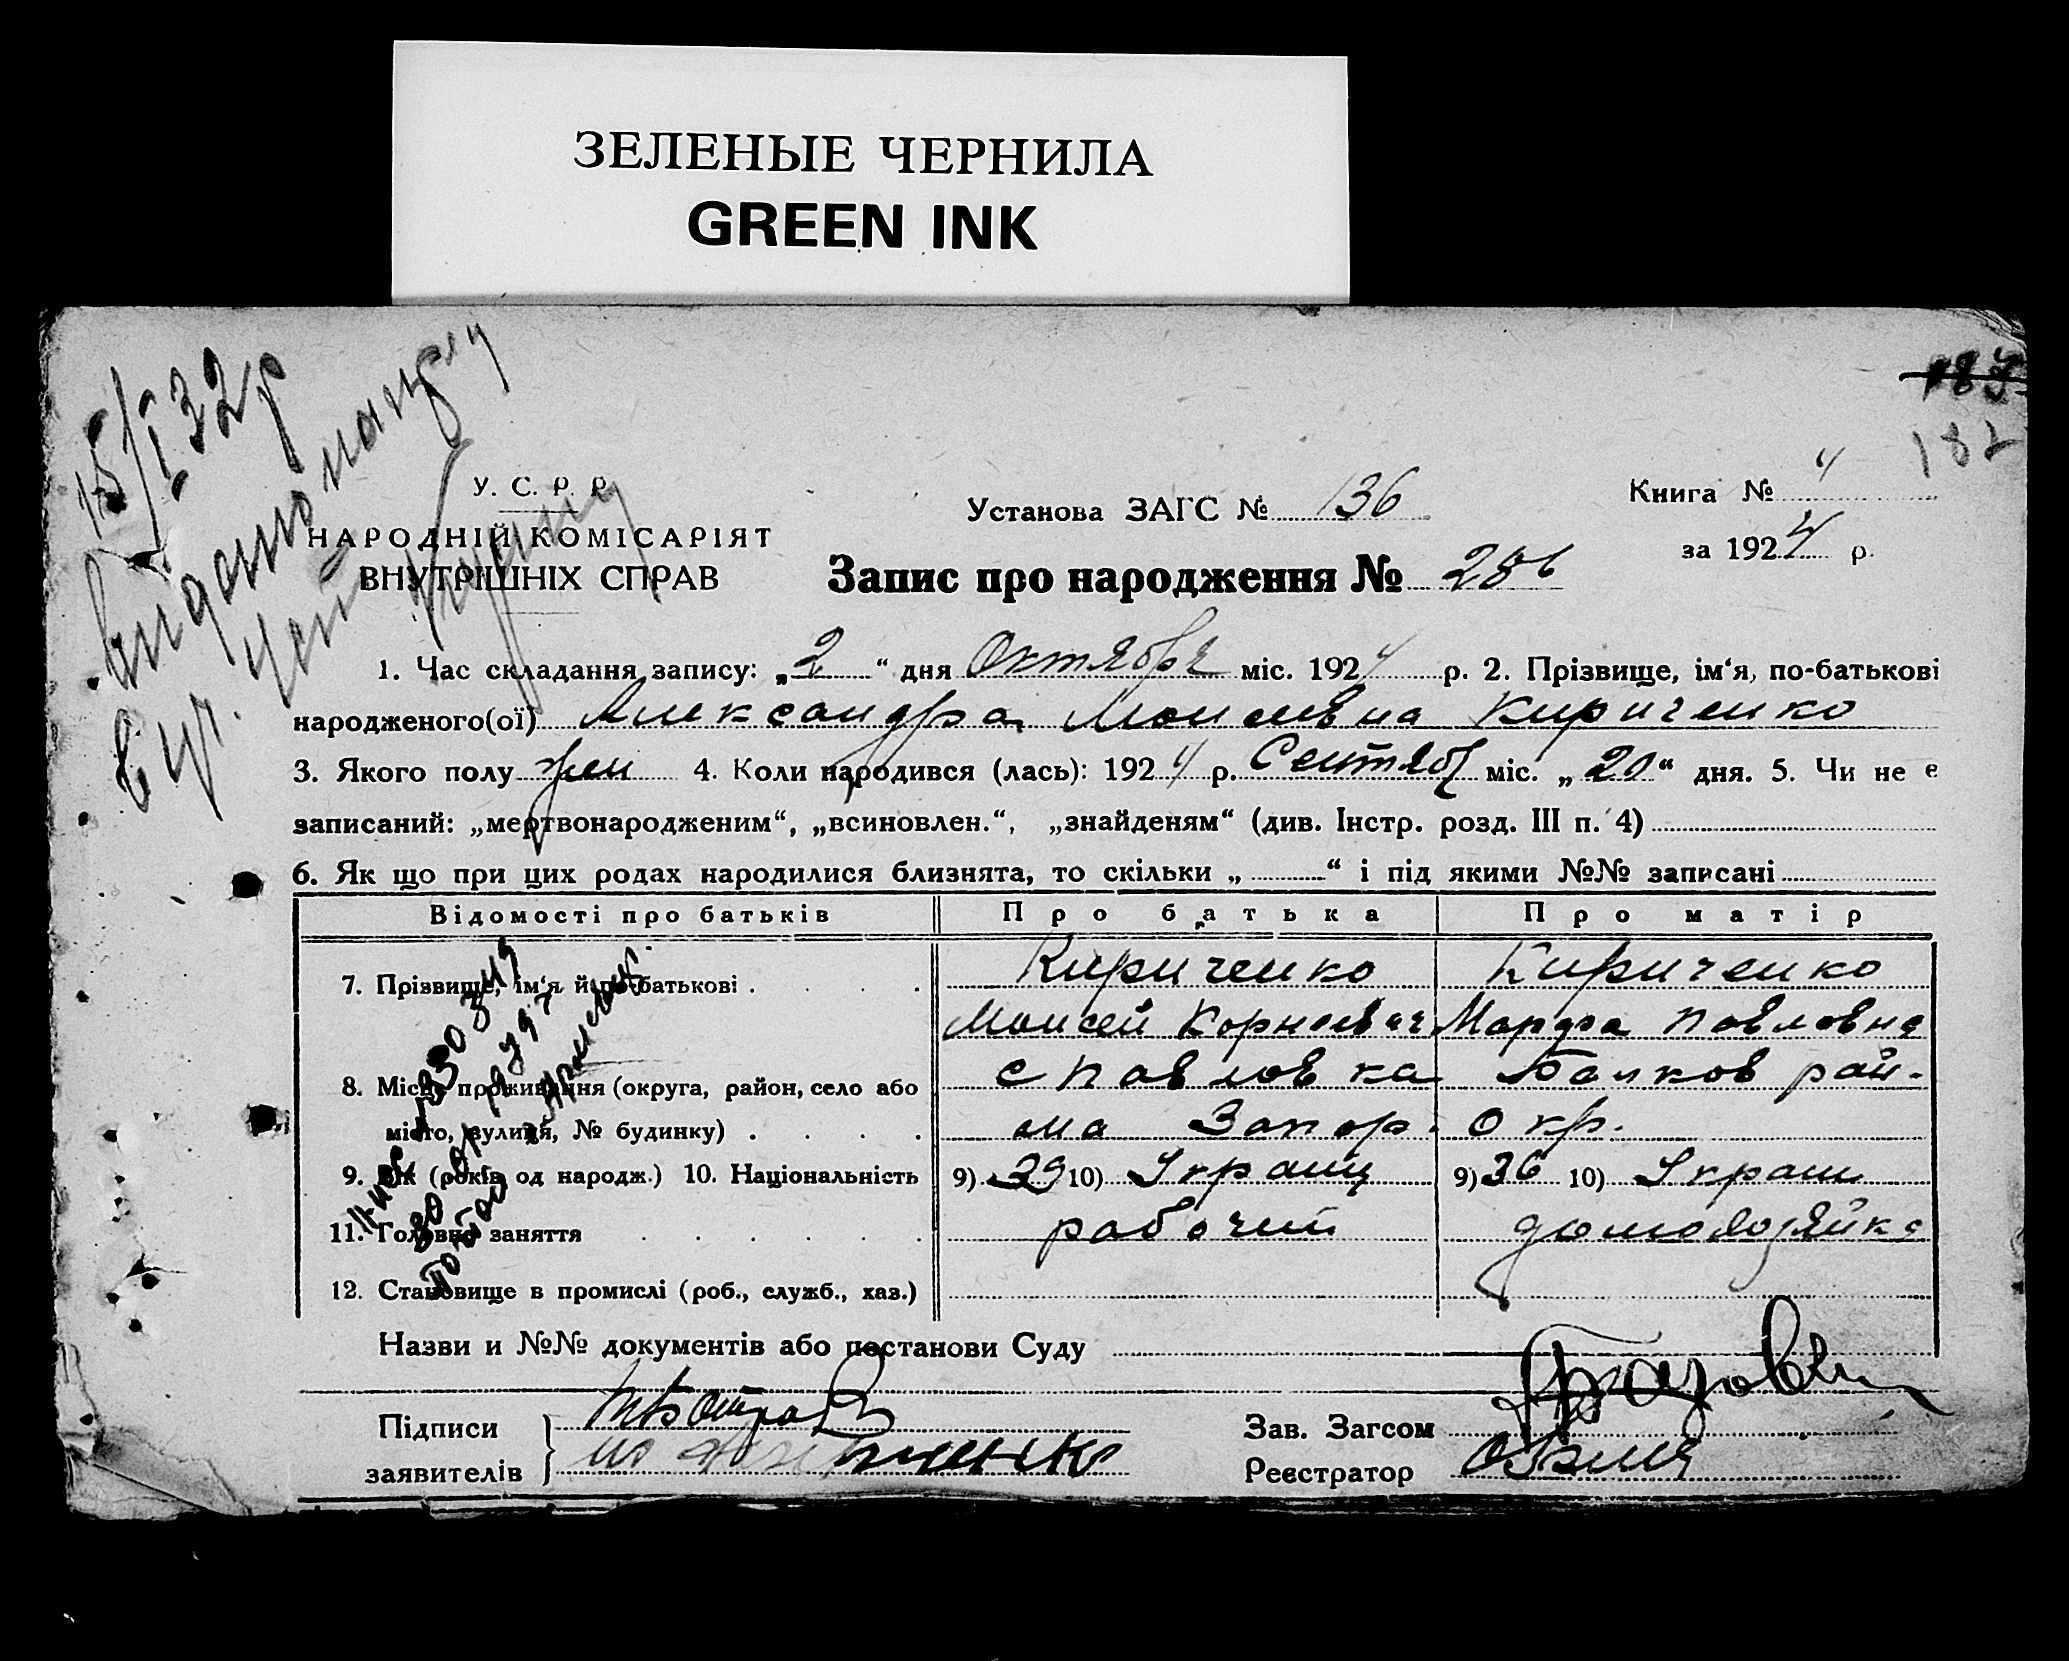 ЗЕЛЕНЫЕ ЧЕРНИЛА
GREEN INK
187
182
15/I 32 р
У. С. Р. Р.
НАРОДНІЙ КОМІСАРІЯТ
ВНУТРІШНІХ СПРАВ
Установа ЗАГС № 136
Книга № 4
за 1924 р.
Запис про народження № 286
1. Час складання запису: „2“ дня Октября міс. 1924 р. 2. Прізвище, ім‘я, по-батькові
народженого(ої) Александра Моисеевна Кириченко
3. Якого полу жен 4. Коли народився (лась): 1924 р. Сентяб міс. „20“ дня. 5. Чи не є
записаний: „мертвонародженим“, „всиновлен.“, „знайденям“ (див. Інстр. розд. III п. 4)
6. Як що при цих родах народилися близнята, то скільки „ “ і під якими №№ записані
Відомості про батьків Про батька Про матір
7. Прізвище, ім‘я й по-батькові Кириченко Кириченко
Моисей Корнеевич Марфа Павловна
8. Місце проживання (округа, район, село або с Павловка Балков рай-
місто, вулиця, № будинку) она Запор. Окр.
9. Вік (років од народж.) 10. Національність 9) 39 10) Украинц 9) 36 10) Украин
11. Головне заняття рабочий домохозяйка
12. Становище в промислі (роб., служб., хаз.)
Назви и №№ документів або постанови Суду
Підписи
заявителів
Зав. Загсом
Реєстратор